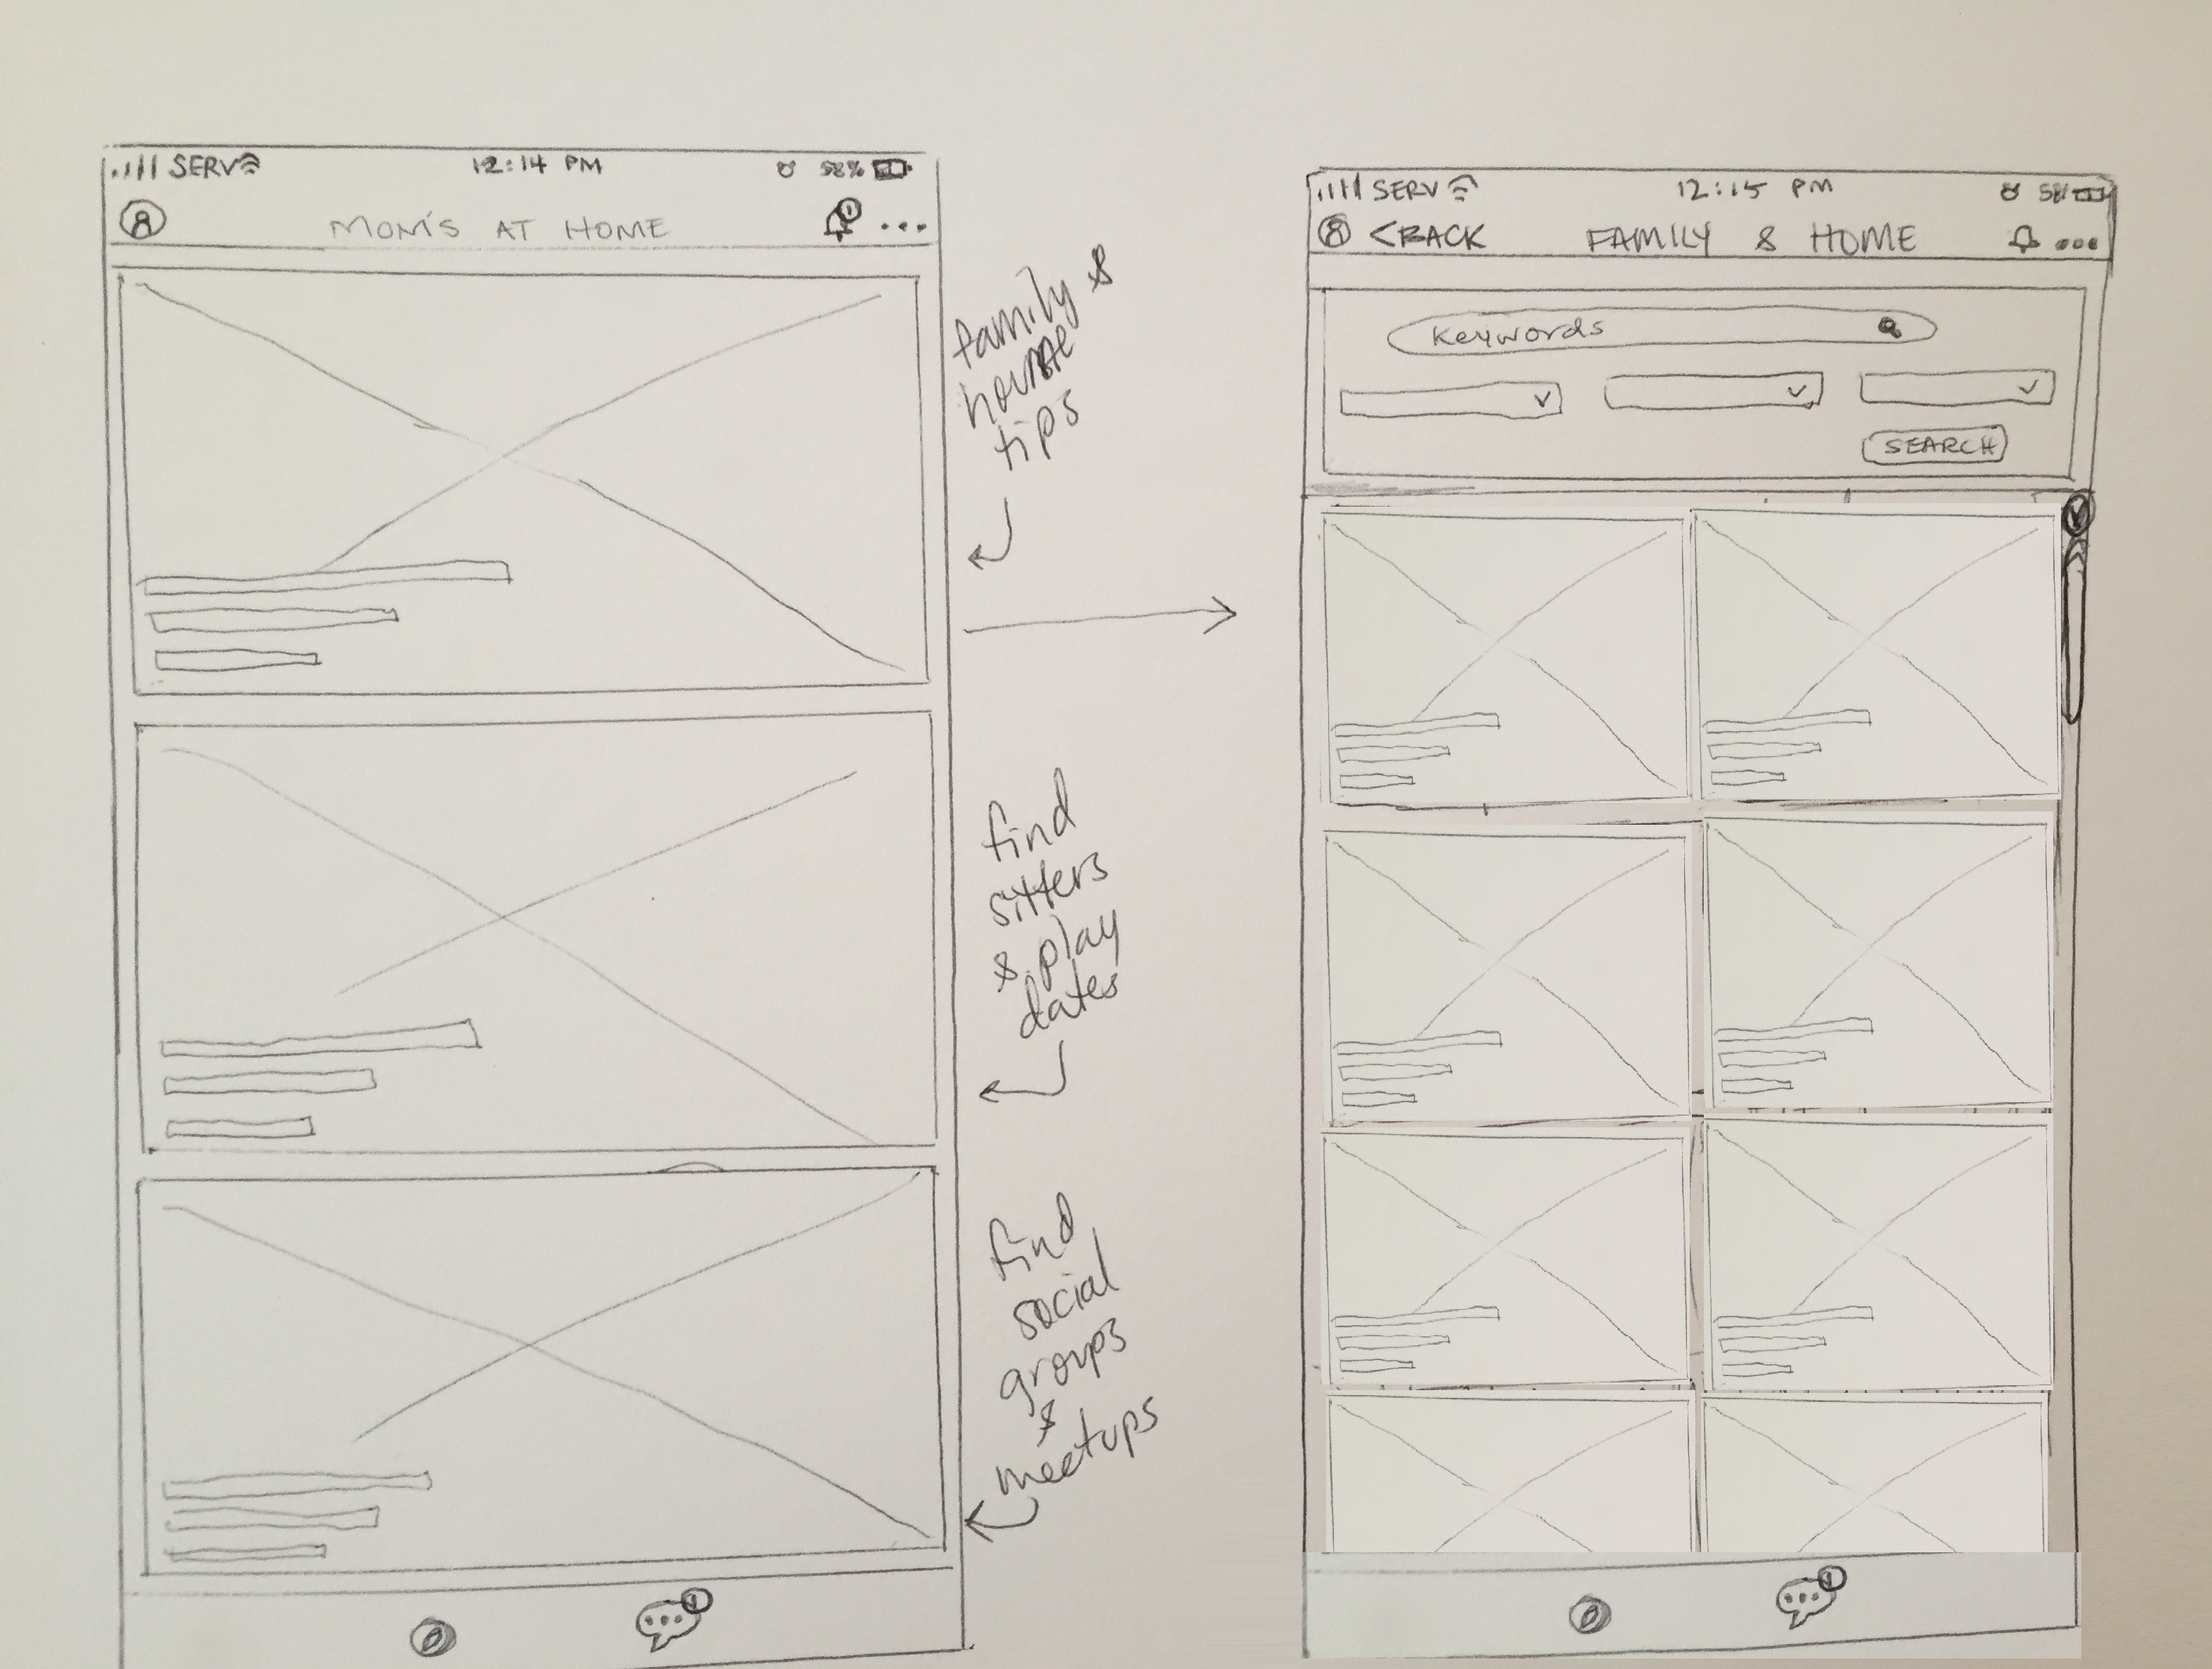 SERV
12:14 PM
58%
MOM'S AT HOME
1
family &
home
tips
find
sitters
& play
dates
find
social
groups
&
meetups
1
SERV
12:15 PM
58%
<BACK
FAMILY & HOME
keywords
SEARCH
1